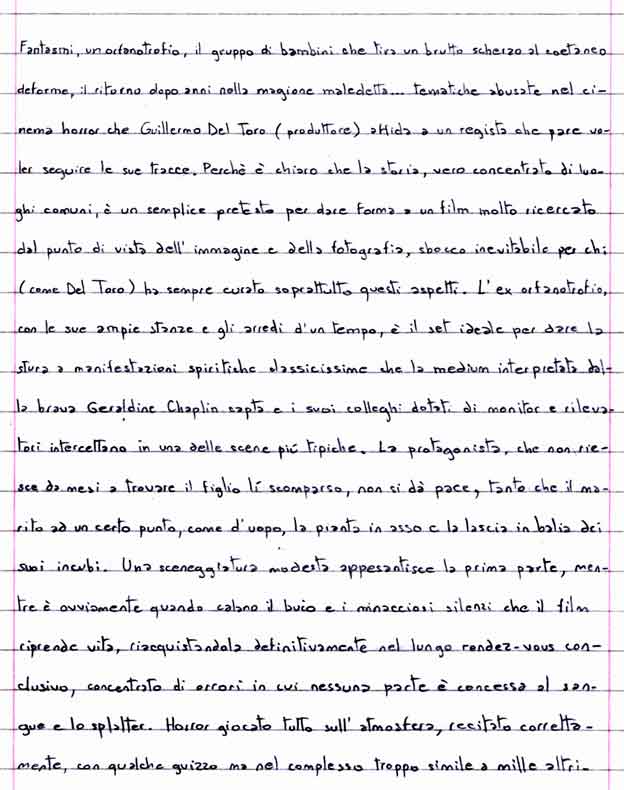 Fantasmi, un orfanotrofio, il gruppo di bambini che tira un brutto scherzo al coetaneo
deforme, il ritorno dopo anni nella magione maledetta... tematiche abusate nel ci-
nema horror che Guillermo Del Toro (produttore) affida a un regista che pare vo-
ler seguire le sue tracce. Perchè è chiaro che la storia, vero concentrato di luo-
ghi comuni, è un semplice pretesto per dare forma a un film molto ricercato
dal punto di vista dell'immagine e della fotografia, sbocco inevitabile per chi
(come Del Toro) ha sempre curato soprattutto questi aspetti. L'ex orfanotrofio,
con le sue ampie stanze e gli arredi d'un tempo, è il set ideale per dare la
stura a manifestazioni spiritiche classicissime che la medium interpretata dal-
la brava Geraldine Chaplin capta e i suoi colleghi dotati di monitor e rileva-
tori intercettano in una delle scene più tipiche. La protagonista, che non rie-
sce da mesi a trovare il figlio lí scomparso, non si dà pace, tanto che il ma-
rito ad un certo punto, come d'uopo, la pianta in asso e la lascia in balia dei
suoi incubi. Una sceneggiatura modesta appesantisce la prima parte, men-
tre è ovviamente quando calano il buio e i minacciosi silenzi che il film
riprende vita, riacquistandola definitivamente nel lungo rendez-vous con-
clusivo, concentrato di orrori in cui nessuna parte è concessa al san-
gue e lo splatter. Horror giocato tutto sull'atmosfera, recitato corretta-
mente, con qualche guizzo ma nel complesso troppo simile a mille altri.